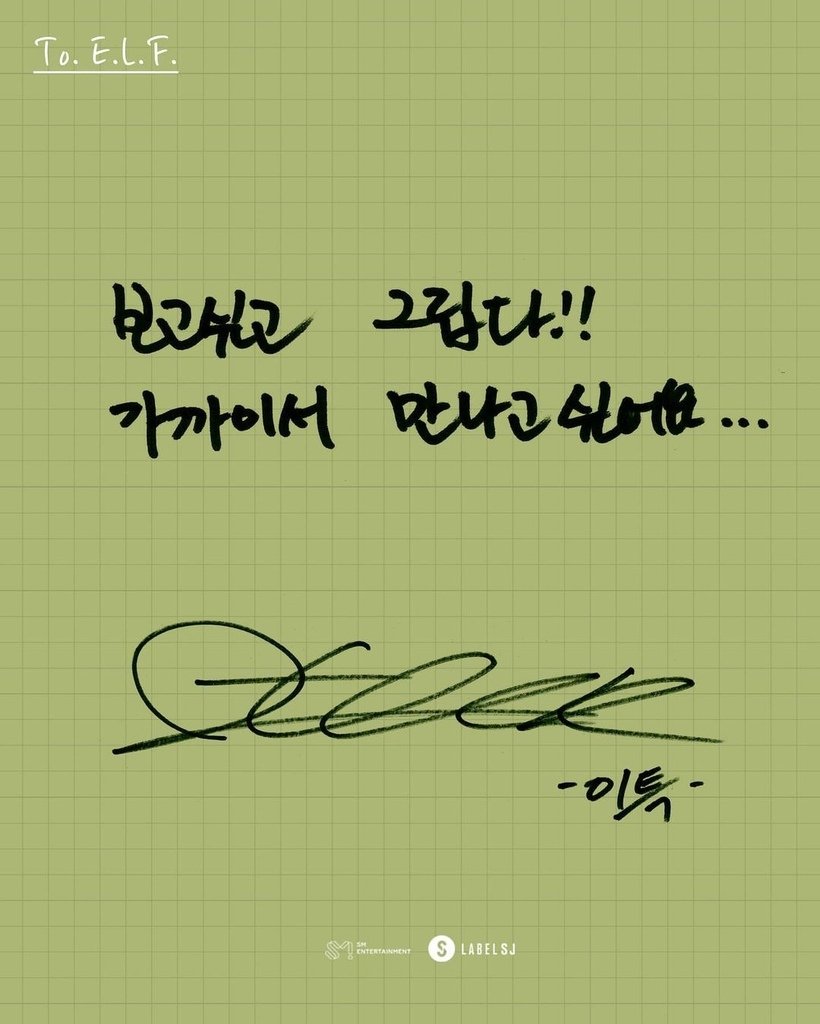 To. E.L.F.
보고싶고 그립다!!
가까이서 만나고 싶어요...
-이특-
SM ENTERTAINMENT
LABELSJ